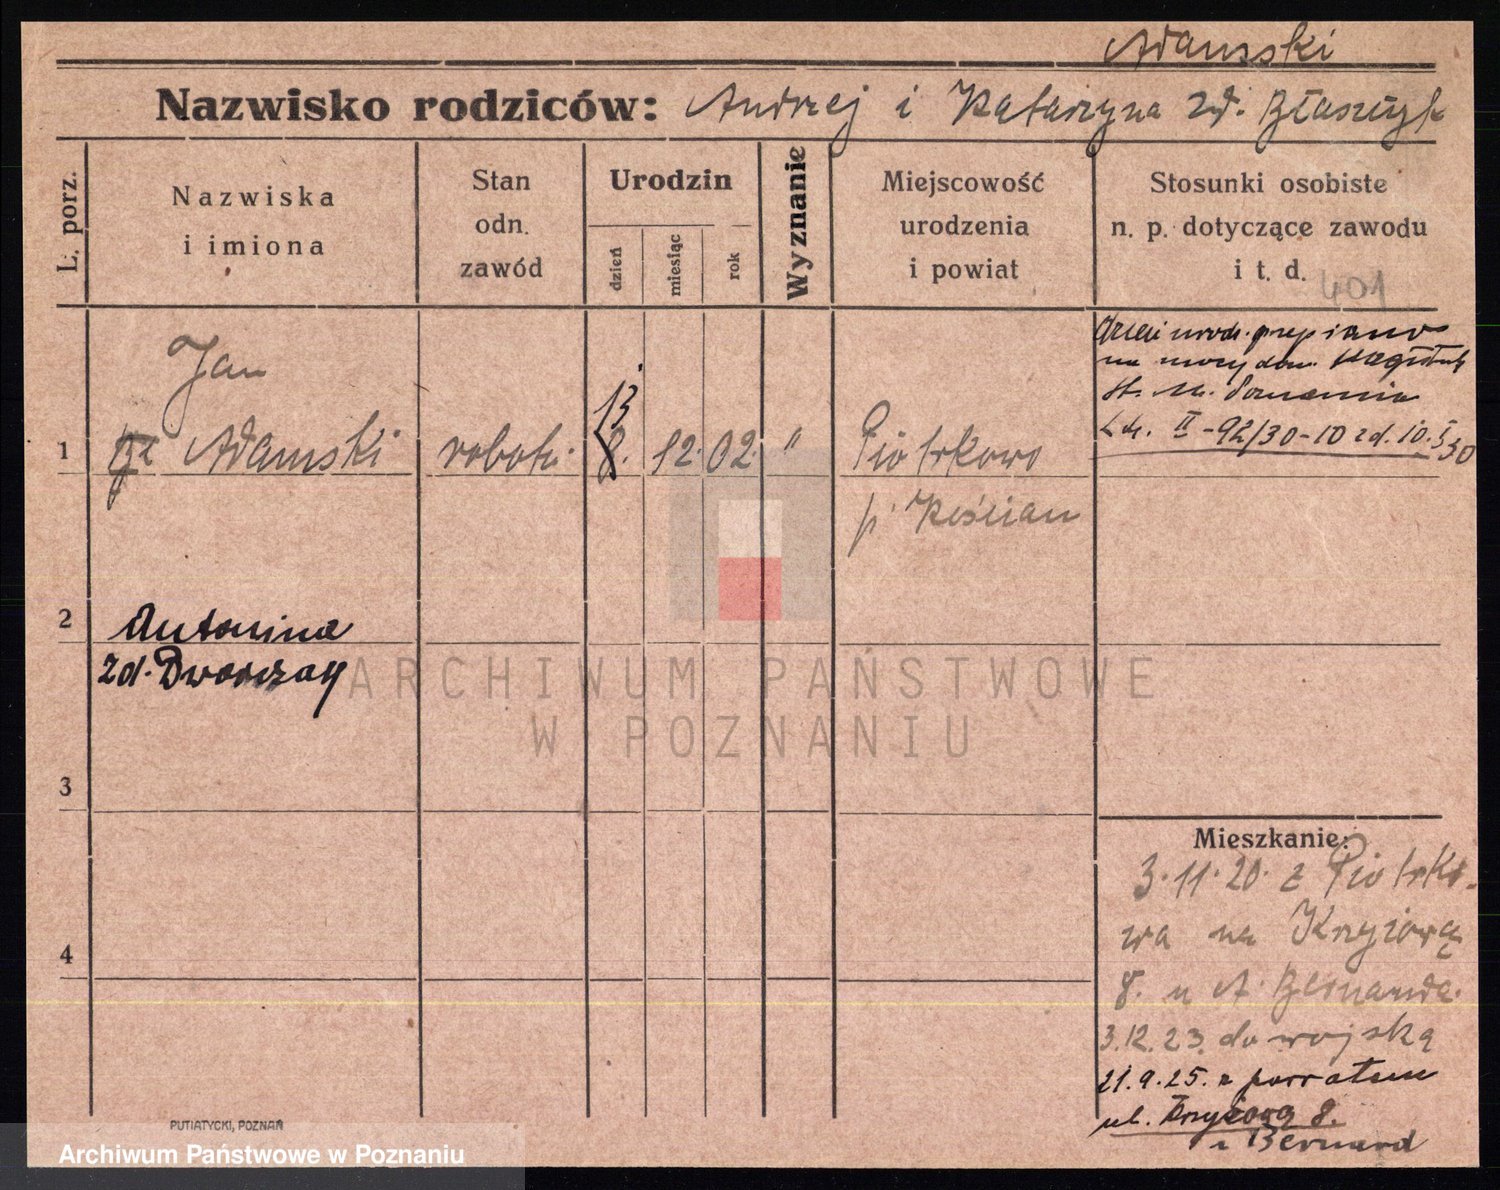 Adamski
Nazwisko rodziców: Andrzej i Katarzyna zd. Błaszczyk
L. porz.
Nazwiska
i imiona
Stan
odn.
zawód
Urodzin
dzień
miesiąc
rok
Wyznanie
Miejscowość
urodzenia
i powiat
Stosunki osobiste
n. p. dotyczące zawodu
i t. d.
401
Jan
1 Adamski robotn. 13 8. 12. 02. " Piotrkowo
p. Kościan
na mocy
st. m. Poznania
L.dz. II-92/30-10 z d. 10.5.30
2 Antonina
zd. Dworczak
3
4
Mieszkanie:
3.11.20. z Piotrko-
wa na Krzyżową
8. u A. Bernarda.
3.12.23. do wojska
21.9.25. z powrotem
ul. Krzyżowa 8.
u Bernard
PUTIATYCKI, POZNAŃ
ARCHIWUM PAŃSTWOWE
W POZNANIU
Archiwum Państwowe w Poznaniu